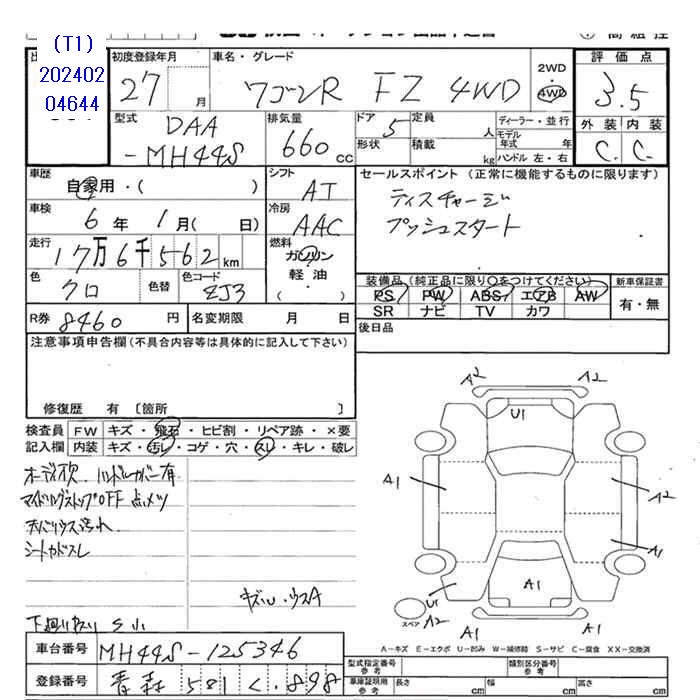 (T1)
202402
04644
初度登録年月
27 月
車名・グレード
ワゴンR FZ 4WD
2WD
・
4WD
評価点
3.5
外装 内装
C. C.
型式
DAA
-MH44S
排気量
660 cc
ドア 5
形状
定員 人
積載 kg
ディーラー・並行
モデル
年式 年
ハンドル 左・右
車歴
自家用・( )
シフト
AT
セールスポイント(正常に機能するものに限ります)
ディスチャージ
プッシュスタート
車検
6年 1月( 日)
冷房
AAC
走行
17万6千562 km
燃料
ガソリン
軽油
( )
色
クロ
色替
色コード
ZJ3
装備品(純正品に限り○をつけてください)
PS PW ABS エアB AW
SR ナビ TV カワ
新車保証書
有・無
R券 8460 円
名変期限 月 日
後日品
注意事項申告欄(不具合内容等は具体的に記入して下さい)
修復歴 有 〔箇所 〕
検査員
記入欄
FW キズ・飛石・ヒビ割・リペア跡・×要
内装 キズ・汚レ・コゲ・穴・スレ・キレ・破レ
オーディオ欠 ハンドルカバー有
アイドリングストップOFF 点メツ
天バリウス汚れ
シートカドスレ
キズ小、ウスA
下廻りサビ S小
A2 A2
U1
A1
A2
A1
A1
U1
A2
スペア
A1 A1
A-キズ E-エクボ U-凹み W-補修跡 S-サビ C-腐食 XX-交換済
車台番号 MH44S-125346
登録番号 青森 581 く ・898
型式指定番号
参考
類別区分番号
参考
車庫証明用
参考
長さ cm
幅 cm
高さ cm